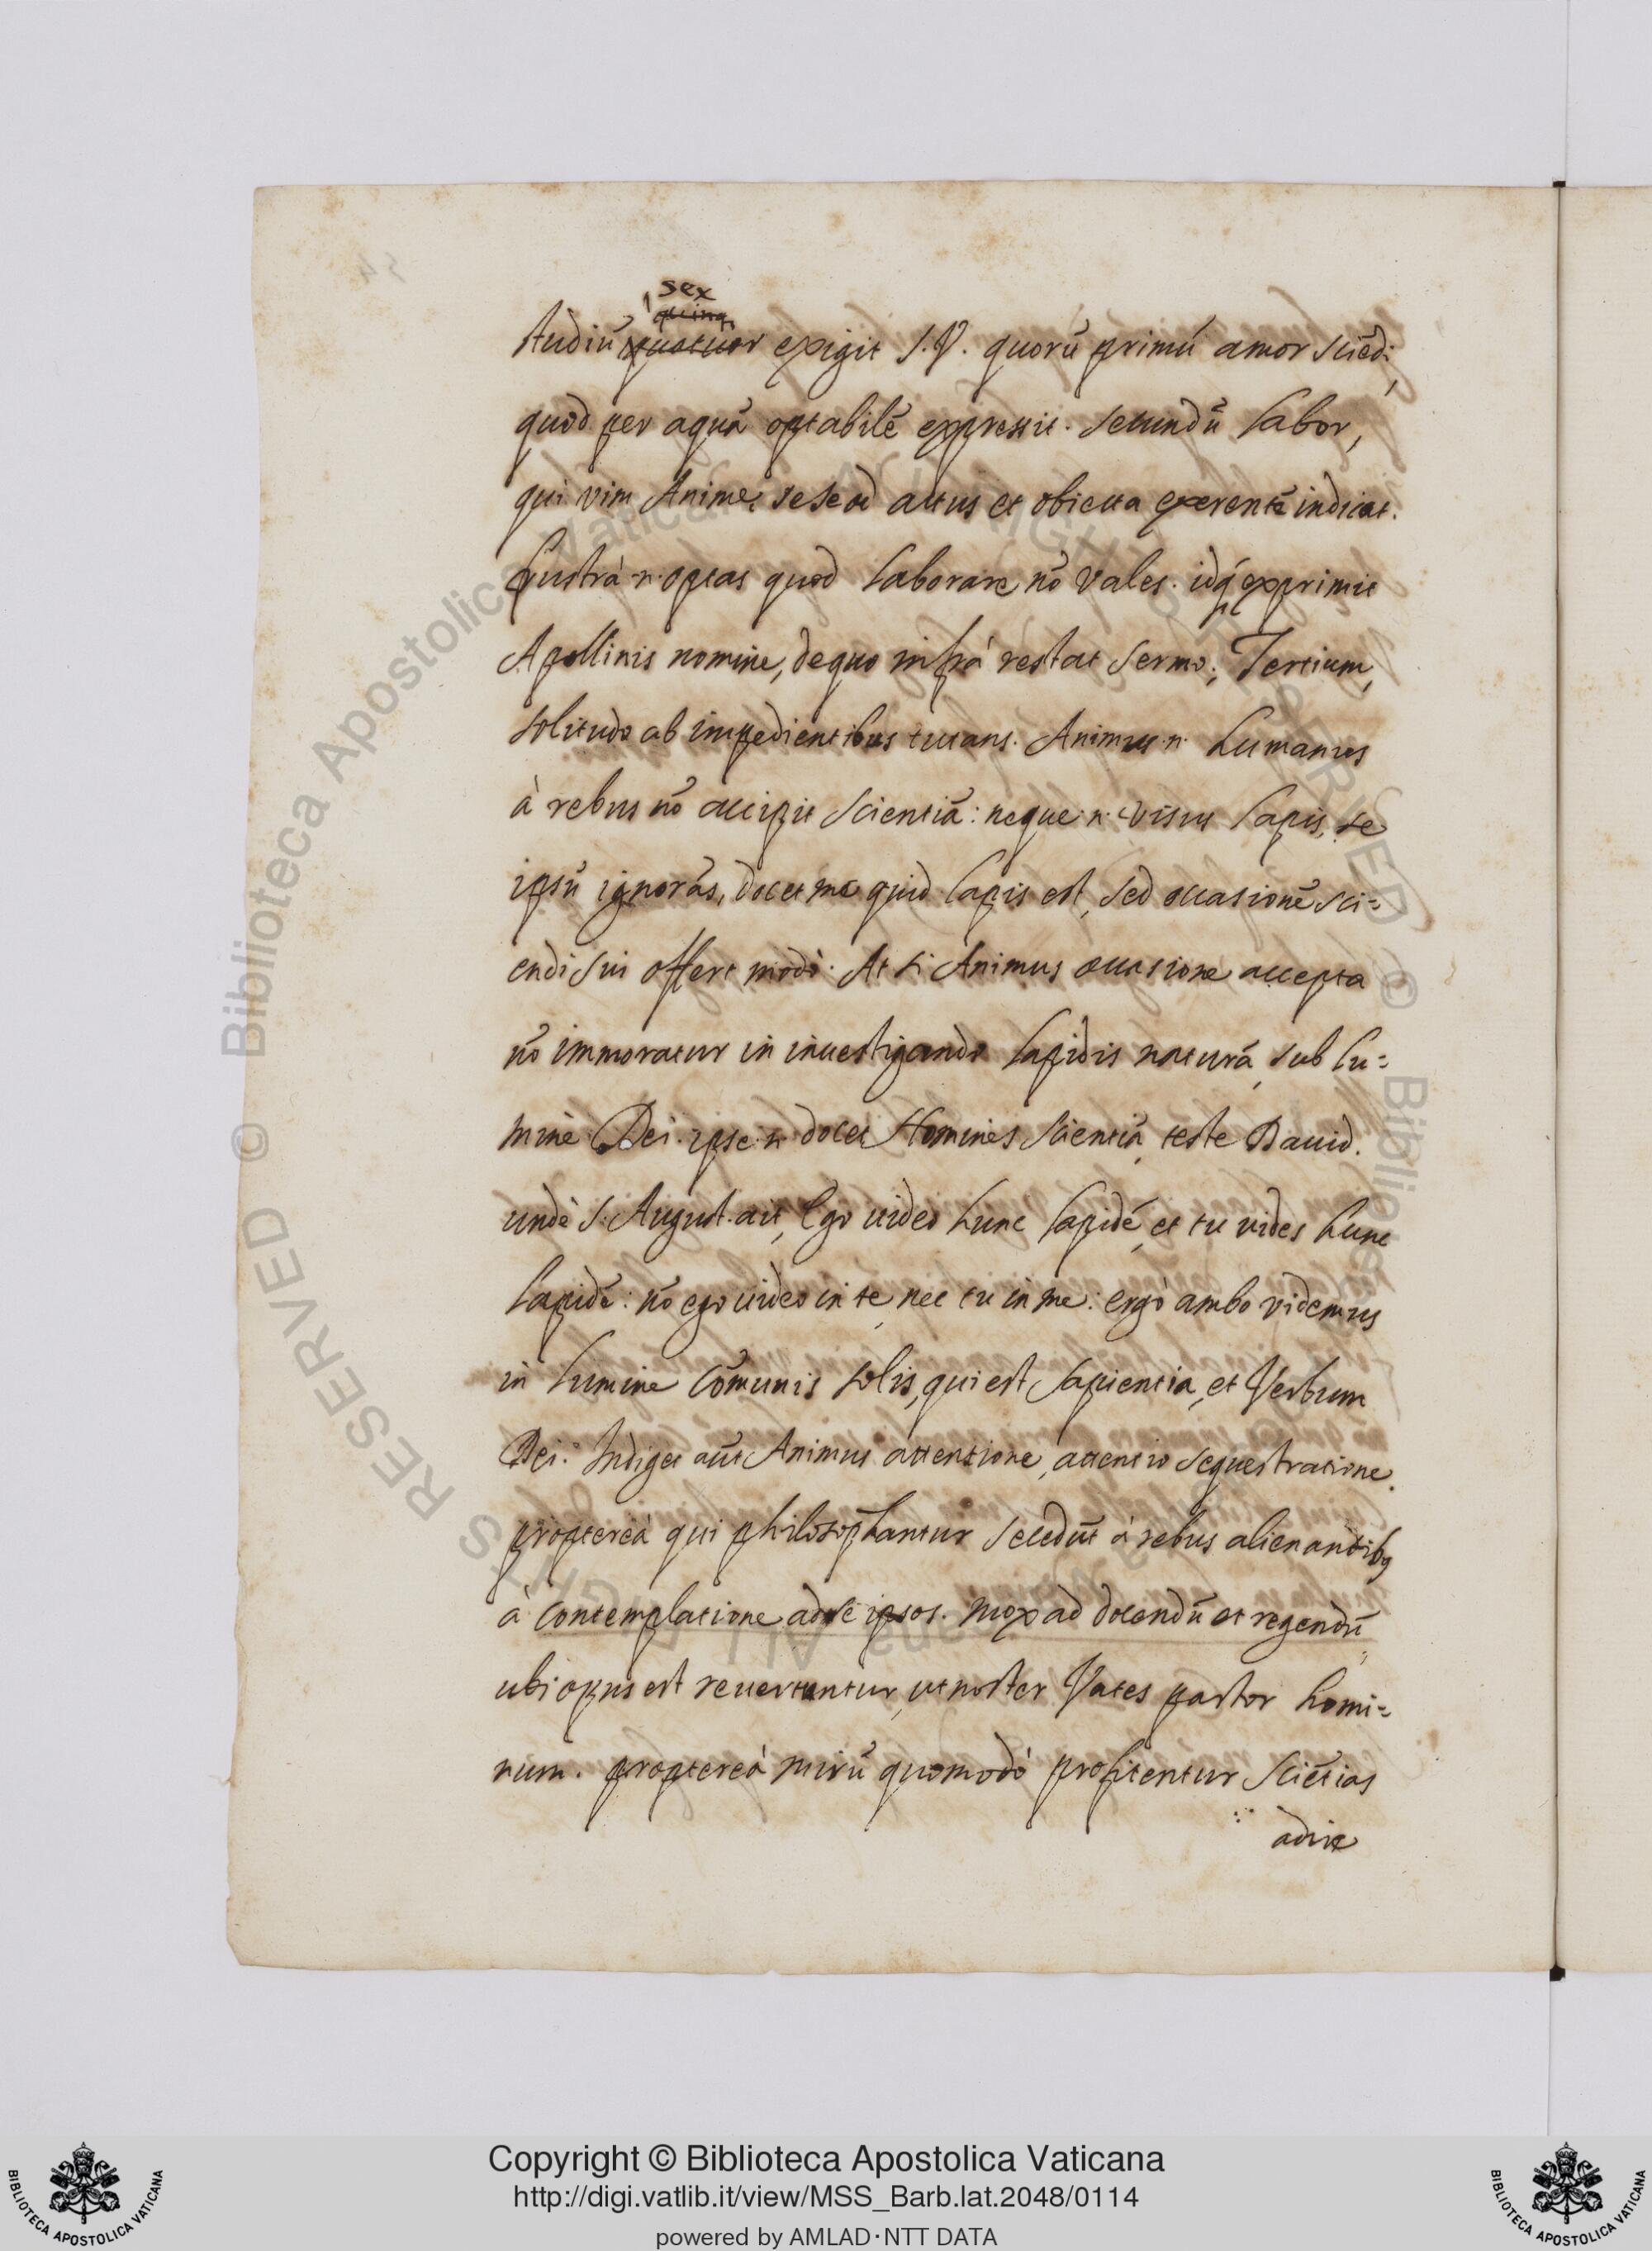 sex
quinq
studiũ quatuor exigit S.V. quorũ primũ amor sciẽdi,
quod per aquã optabilẽ expressit. secundũ labor,
qui vim Animę sese ad actus et obiecta exerentẽ indicat.
frustrà .n. optas quod laborare nõ vales. idq́ exprimit
Apollinis nomine, de quo infrà restat sermo; Tertium,
solitudo ab impedientibus tutans. Animus .n. humanus
à rebus nõ accipit scientiã: neque .n. visus lapis, se
ipsũ ignorãs, docet me quid lapis est, sed occasionẽ sci=
endi sui offert modò. At si Animus occasione accepta
nõ immoratur in inuestigando lapidis naturã, sub lu=
mine Dei. ipse .n. docet Homines scientiã, teste Dauid.
undè S. August. ait, Ego uideo hunc lapidẽ, et tu vides hunc
lapidẽ: nõ ego uideo in te, nec tu in me: ergò ambo videmus
in lumine cõmunis solis, qui est sapientia, et Verbum
Dei. Indiget aũt Animus attentione, attentio sequestratione.
proptereà qui philosophantur secedũt à rebus alienantibꝯ
à contemplatione ad se ipsos. mox ad docendũ et regendũ,
ubi opus est reuertuntur, ut noster Vates pastor homi=
num. proptereà mirũ quomodò profitentur sciẽtias
adire
Biblioteca Apostolica Vaticana ALL RIGHTS RESERVED ©
Copyright © Biblioteca Apostolica Vaticana
http://digi.vatlib.it/view/MSS_Barb.lat.2048/0114
powered by AMLAD·NTT DATA
BIBLIOTECA APOSTOLICA VATICANA
BIBLIOTECA APOSTOLICA VATICANA